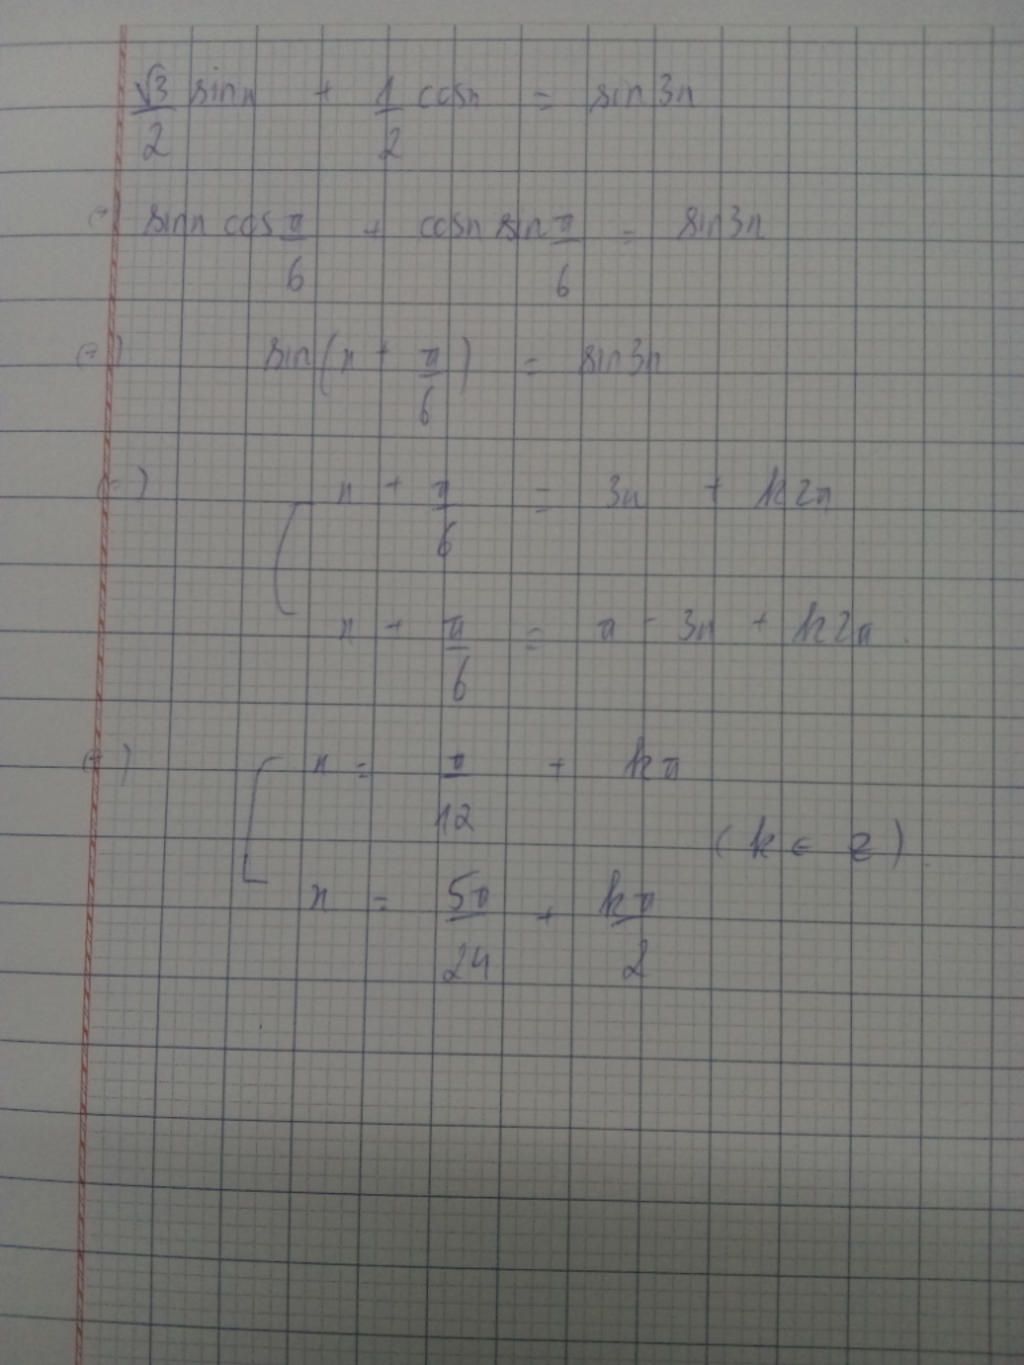 √3/2 sin x + 1/2 cos x = sin 3x
(=) sin x cos π/6 + cos x sin π/6 = sin 3x
(=) sin(x + π/6) = sin 3x
(=) [ x + π/6 = 3x + k2π
x + π/6 = π - 3x + k2π
(=) [ x = π/12 + kπ
(k ∈ Z)
x = 5π/24 + kπ/2